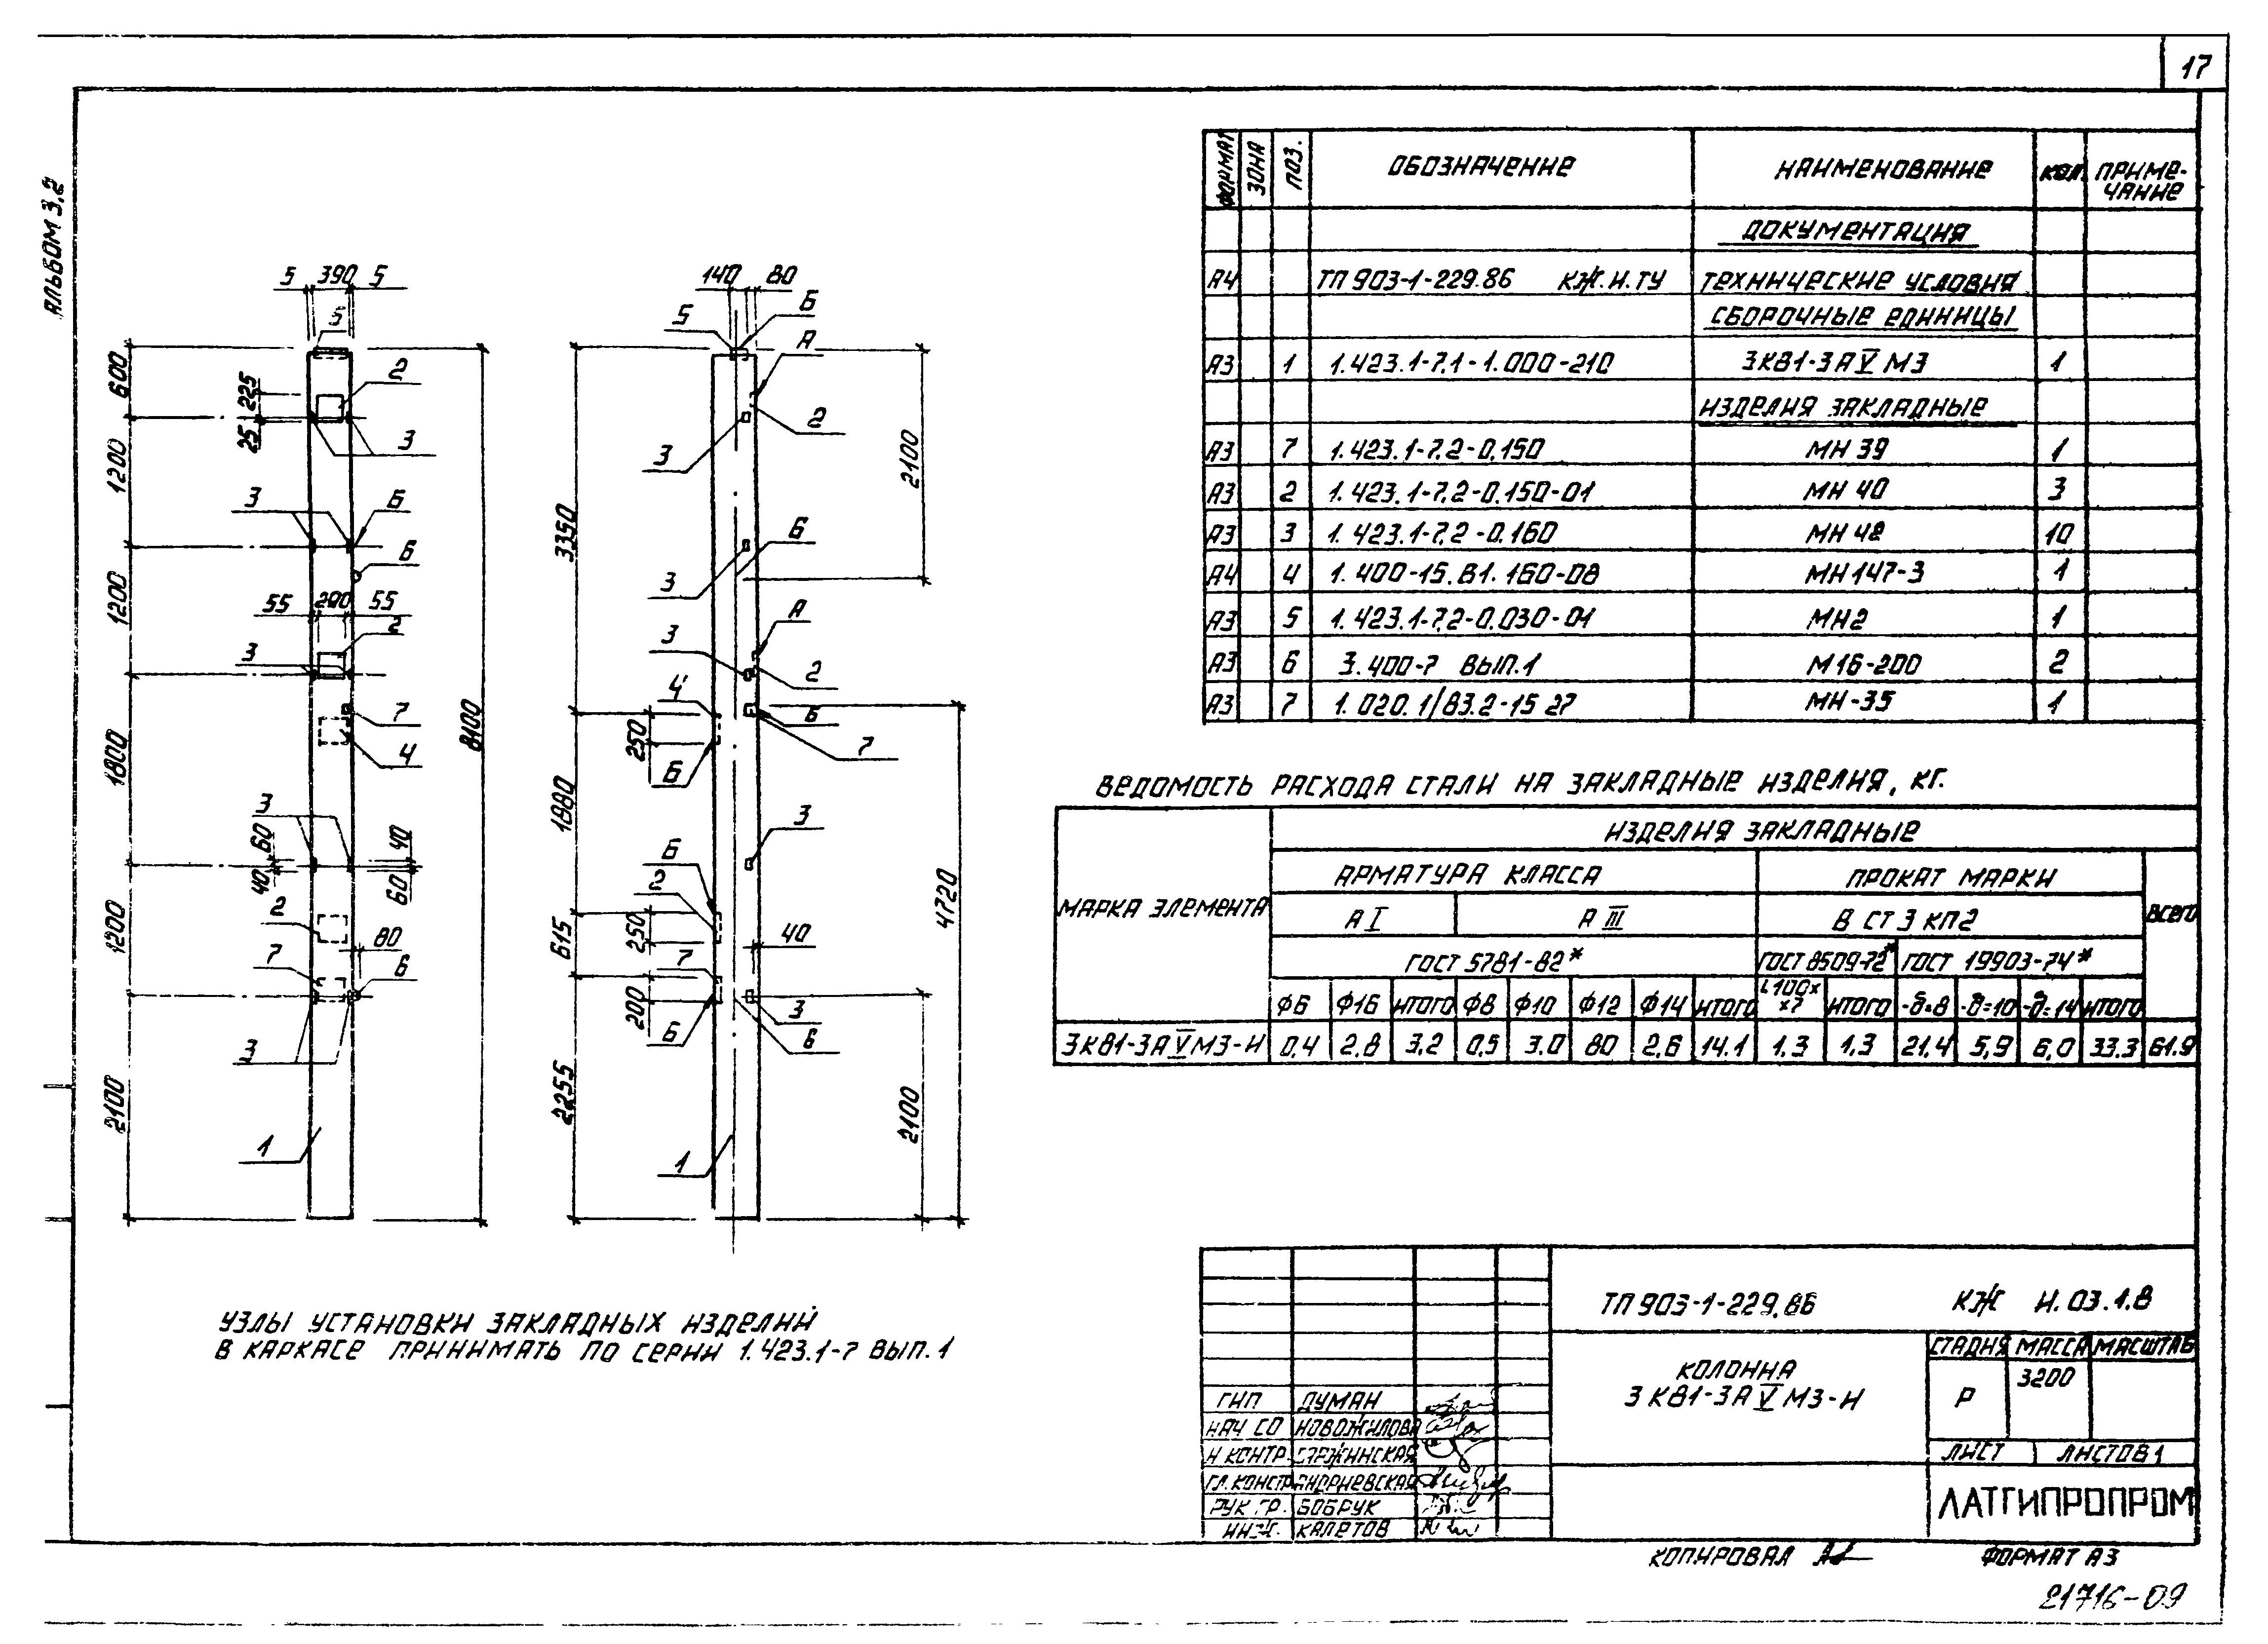 17
АЛЬБОМ 3.2
5 390 5
5
600
225
25
2
3
1200
3 Б
6
1200
55 290 55
2
3
7
4
1800
8100
3
60 40
40 60
2
1200
80
7 6
3
2100
1
140 80
5 Б
А
2
3
2100
3350
6
3
А
3
2
4
Б
250
7
Б
1880
3
4720
Б
2
250
615
40
7
200
3
Б
6
2255
2100
1
УЗЛЫ УСТАНОВКИ ЗАКЛАДНЫХ ИЗДЕЛИЙ
В КАРКАСЕ ПРИНИМАТЬ ПО СЕРИИ 1.423.1-7 ВЫП.1
ФОРМАТ ЗОНА ПОЗ. ОБОЗНАЧЕНИЕ НАИМЕНОВАНИЕ КОЛ. ПРИМЕ-
ЧАНИЕ
ДОКУМЕНТАЦИЯ
А4 ТП 903-1-229.86 КЖ.И.ТУ ТЕХНИЧЕСКИЕ УСЛОВИЯ
СБОРОЧНЫЕ ЕДИНИЦЫ
А3 1 1.423.1-7.1-1.000-210 3К81-3А V М3 1
ИЗДЕЛИЯ ЗАКЛАДНЫЕ
А3 7 1.423.1-7.2-0.150 МН 39 1
А3 2 1.423.1-7.2-0.150-01 МН 40 3
А3 3 1.423.1-7.2-0.160 МН 48 10
А4 4 1.400-15.В1.160-08 МН 147-3 1
А3 5 1.423.1-7.2-0.030-01 МН2 1
А3 6 3.400-7 ВЫП.1 М16-200 2
А3 7 1.020.1/83.2-15 27 МН-35 1
ВЕДОМОСТЬ РАСХОДА СТАЛИ НА ЗАКЛАДНЫЕ ИЗДЕЛИЯ, КГ.
МАРКА ЭЛЕМЕНТА ИЗДЕЛИЯ ЗАКЛАДНЫЕ
АРМАТУРА КЛАССА ПРОКАТ МАРКИ ВСЕГО
А I А III В СТ 3 КП2
ГОСТ 5781-82* ГОСТ 8509-72* ГОСТ 19903-74*
Ф6 Ф16 ИТОГО Ф8 Ф10 Ф12 Ф14 ИТОГО L100××7 ИТОГО -δ=8 -δ=10 -δ=14 ИТОГО
3К81-3А V М3-И 0,4 2,8 3,2 0,5 3.0 80 2,6 14.1 1,3 1,3 21,4 5,9 6,0 33.3 61.9
ТП 903-1-229.86 КЖ И.03.1.8
КОЛОННА
3К81-3А V М3-И
СТАДИЯ МАССА МАСШТАБ
Р 3200
ЛИСТ ЛИСТОВ 1
ЛАТГИПРОПРОМ
ГИП ДУМАН
НАЧ СО НОВОЖИЛОВА
Н КОНТР.
ГЛ.КОНСТР.
РУК.ГР. БОБРУК
ИНЖ. КАЛЕТОВ
КОПИРОВАЛ ФОРМАТ А3
21716-09